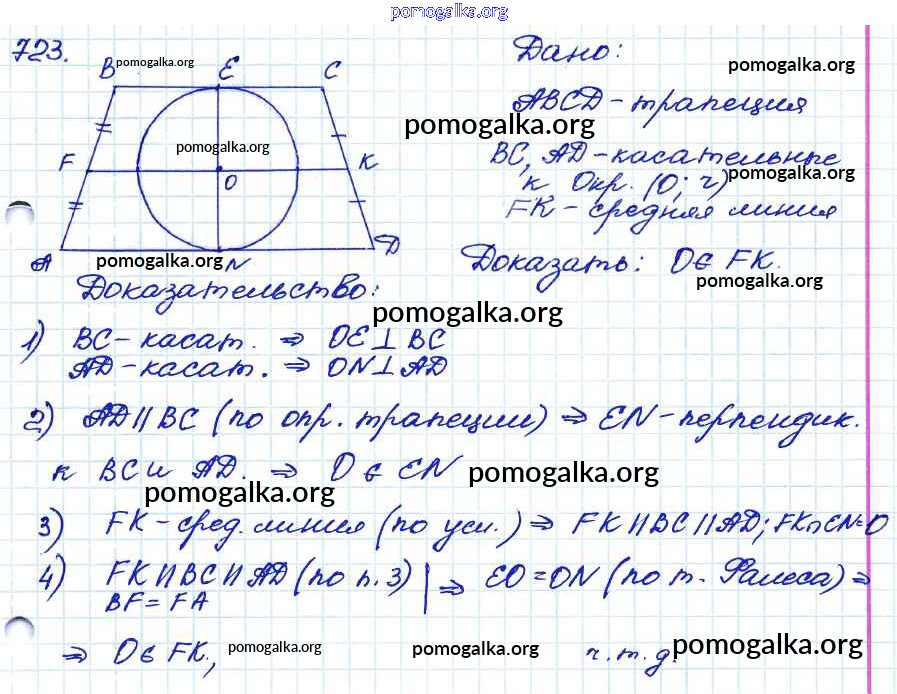 pomogalka.org
723.
Дано:
B pomogalka.org E C
pomogalka.org
ABCD - трапеция
pomogalka.org
F pomogalka.org K
O
BC, AD - касательные
к Окр. (O; r) pomogalka.org
FK - средняя линия
A pomogalka.org N D
Доказать: O ∈ FK.
pomogalka.org
Доказательство:
pomogalka.org
1) BC - касат. ⇒ OE ⊥ BC
AD - касат. ⇒ ON ⊥ AD
2) AD || BC (по опр. трапеции) ⇒ EN - перпендик.
к BC и AD. ⇒ O ∈ EN pomogalka.org
pomogalka.org
3) FK - сред. линия (по усл.) ⇒ FK || BC || AD; FK ∩ EN = O
4) FK || BC || AD (по п. 3) | ⇒ EO = ON (по т. Фалеса) ⇒
BF = FA
⇒ O ∈ FK, pomogalka.org pomogalka.org ч.т.д. pomogalka.org